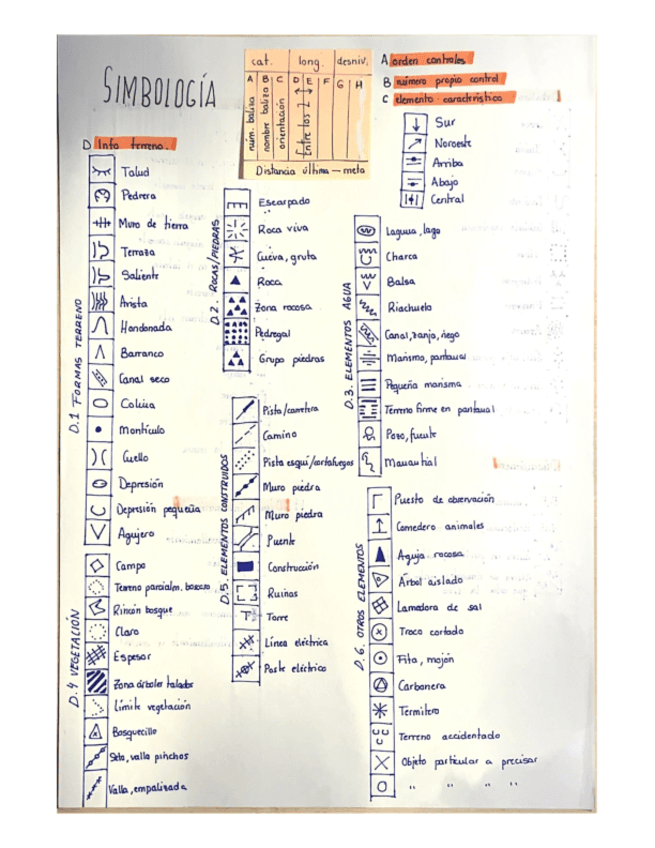 SIMBOLOGÍA
cat. long. desniv.
A B C D E F G H
núm. baliza
nombre baliza
orientación
Entre los 2
Distancia última — meta
A orden controles
B número propio control
C elemento característico
Sur
Noroeste
Arriba
Abajo
Central
D Info terreno.
D.1 FORMAS TERRENO
Talud
Pedrera
Muro de tierra
Terraza
Saliente
Arista
Hondonada
Barranco
Canal seco
Colina
Montículo
Cuello
Depresión
Depresión pequeña
Agujero
D.4 VEGETACIÓN
Campo
Terreno parcialm. boscoso
Rincón bosque
Claro
Espesor
Zona árboles talados
Límite vegetación
Bosquecillo
Seto, valla pinchos
Valla, empalizada
D.2. ROCAS/PIEDRAS
Escarpado
Roca viva
Cueva, gruta
Roca
Zona rocosa
Pedregal
Grupo piedras
D.5. ELEMENTOS CONSTRUIDOS
Pista/carretera
Camino
Pista esquí/cortafuegos
Muro piedra
Muro piedra
Puente
Construcción
Ruinas
Torre
Línea eléctrica
Poste eléctrico
D.3. ELEMENTOS AGUA
Laguna, lago
Charca
Balsa
Riachuelo
Canal, zanja, riego
Marismo, pantanal
Pequeña marisma
Terreno firme en pantanal
Pozo, fuente
Manantial
D.6. OTROS ELEMENTOS
Puesto de observación
Comedero animales
Aguja rocosa
Árbol aislado
Lamadora de sal
Troco cortado
Fita, mojón
Carbonera
Termitero
Terreno accidentado
Objeto particular a precisar
" " " "